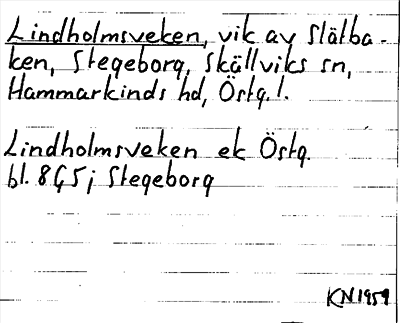 Lindholmsveken, vik av Slätba-
ken, Stegeborg, Skällviks sn,
Hammarkinds hd, Östg. l.
Lindholmsveken ek Östg.
bl. 8G5j Stegeborg
KN 1959